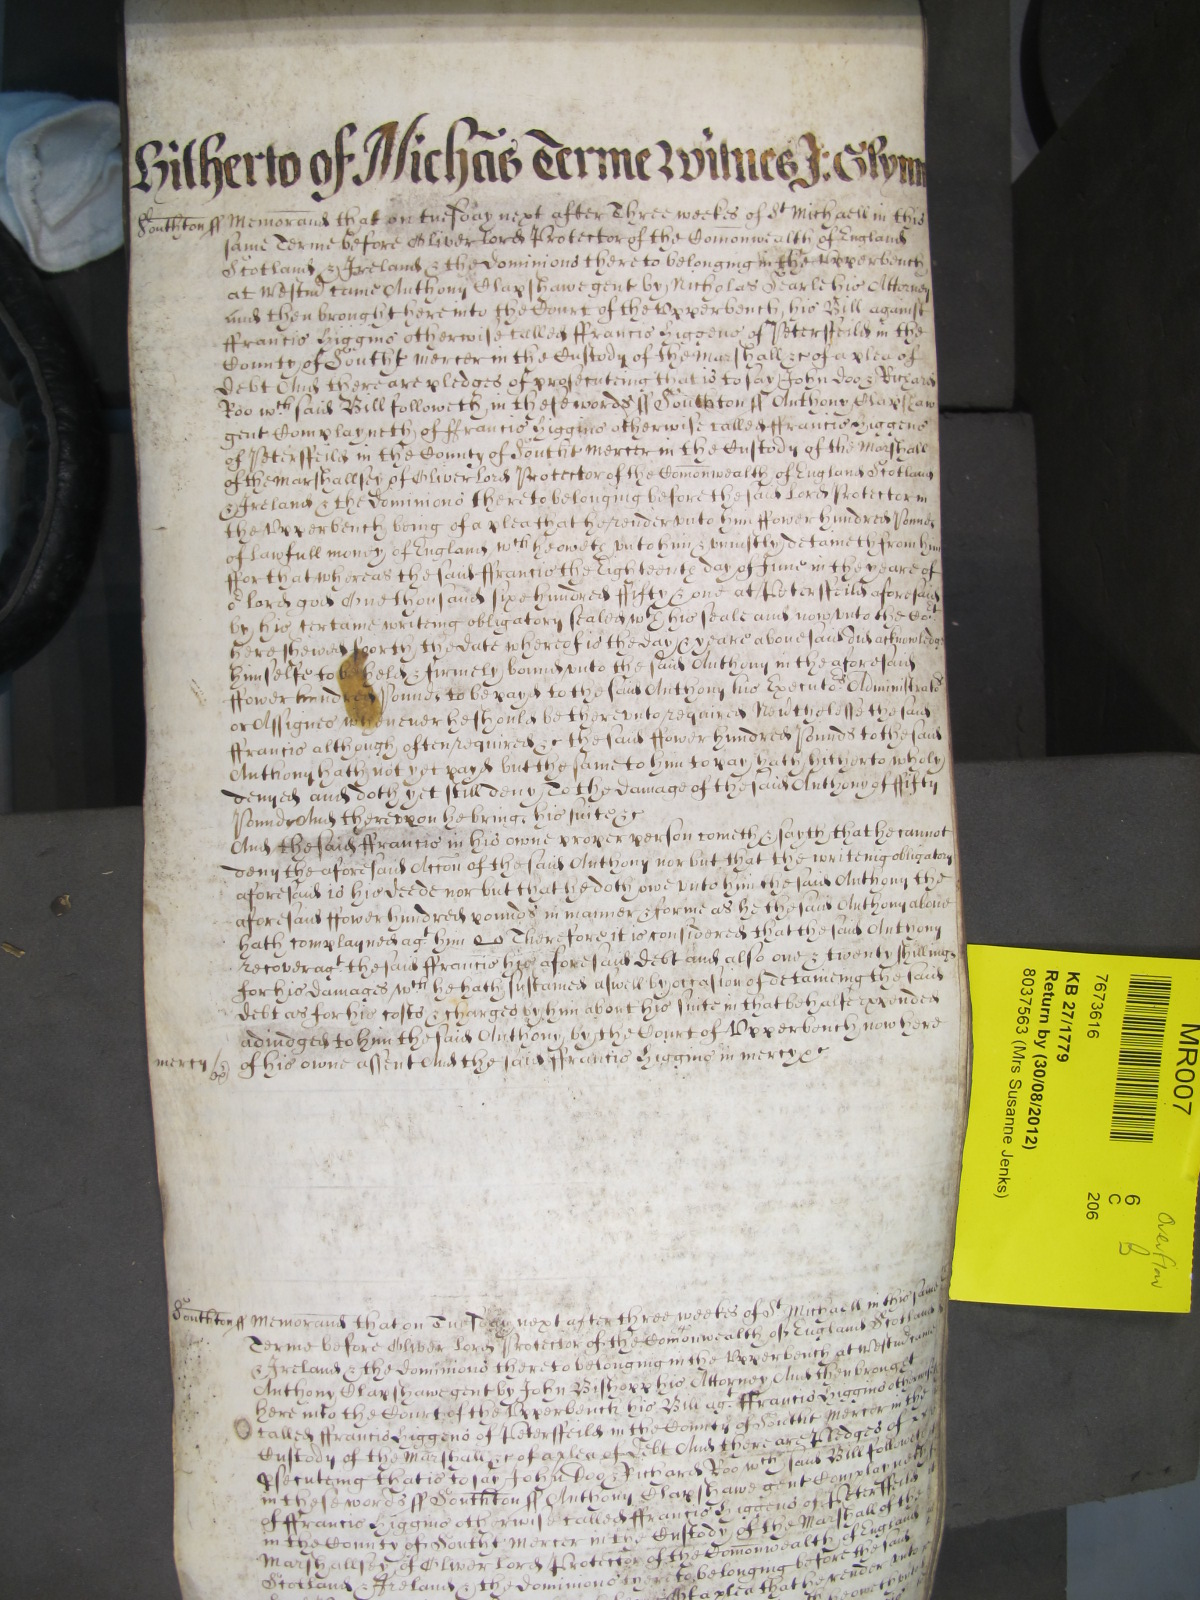 Hitherto of Michās Terme Witnes J: Glynn
Southton ff Memorand that on tuesday next after Three weekes of St Michaell in this
same Terme before Oliver Lord Protector of the Comonwealth of England
Scotland & Ireland & the dominions thereto belonging in the Upperbench
at Westmr came Anthony Clapshawe gent by Nicholas Searle his Attorney
And then brought here into the Court of the Upperbench, his Bill against
ffrancis Higgins otherwise called ffrancis Higgens of Petersfeild in the
County of Southt mercer in the Custody of the Marshall &c of a plea of
Debt And there are pledges of prosecuteing that is to say John Doo & Richard
Roo wch said Bill followeth in these words ff Southton ff Anthony Clapshaw
gent Complayneth of ffrancis Higgins otherwise called ffrancis Higgens
of Petersfeild in the County of Southt Mercer in the Custody of the Marshall
of the Marshallsey of Oliver Lord Protector of the Comonwealth of England Scotland
& Ireland & the Dominions thereto belonging before the said Lord Protector in
the Upperbench being of a plea that he render unto him ffower hundred Pounds
of lawfull money of England wch he oweth unto him & uniustly detaineth from him
ffor that whereas the said ffrancis the Eighteenth day of June in the yeare of
or lord god One thousand six hundred ffifty & one at Petersfeild aforesaid
by his certaine writeing obligatory sealed wth his seale and now unto the Cort
here shewed forth, the date whereof is the day & yeare abovesaid did acknowledge
himselfe to be held & firmely bound unto the said Anthony in the aforesaid
ffower hundred Pounds to be payd to the said Anthony his Executors Administrators
or Assignes whenever he should be thereunto required Neverthelesse the said
ffrancis although often required &c the said ffower hundred Pounds to the said
Anthony hath not yet payd but the same to him to pay hath hitherto wholy
denyed and doth yet still deny To the damage of the said Anthony of ffifty
Pounds And thereupon he brings his suite &c
And the said ffrancis in his owne proper person cometh & sayth that he cannot
deny the aforesaid Accon of the said Anthony nor but that the writeing obligatory
aforesaid is his deede nor but that he doth owe unto him the said Anthony the
aforesaid ffower hundred pounds in manner & forme as he the said Anthony above
hath complayned agt him Therefore it is considered that the said Anthony
recover agt the said ffrancis his aforesaid debt and also one & twenty shillings
for his damages wch he hath sustained aswell by occasion of detaineing the said
debt as for his costs & charges by him about his suite in that behalfe expended
adiudged to him the said Anthony by the Court of Upperbench now here
mercy of his owne assent And the said ffrancis Higgins in mercy &c
Southton ff Memorand that on Tuesday next after three weekes of St Michaell in this same
Terme before Oliver Lord Protector of the Comonwealth of England Scotland
& Ireland & the dominions thereto belonging in the Upperbench at Westmr came
Anthony Clapshawe gent by John Bishopp his Attorney And then brought
here into the Court of the Upperbench his Bill agt ffrancis Higgins otherwise
called ffrancis Higgens of Petersfeild in the County of Southt Mercer in the
Custody of the Marshall &c of a plea of Debt And there are pledges of
psecuteing that is to say John Doo & Richard Roo wch said Bill followeth
in these words ff Southton ff Anthony Clapshawe gent Complayneth
of ffrancis Higgins otherwise called ffrancis Higgens of Petersfeild
in the County of Southt Mercer in the Custody of the Marshall of the
Marshallsey of Oliver Lord Protector of the Comonwealth of England
Scotland & Ireland & the dominions thereto belonging before the said
of a plea that he render unto
MR007
7673616
KB 27/1779
Return by (30/08/2012)
8037563 (Mrs Susanne Jenks)
6
C
206
Overflow
B